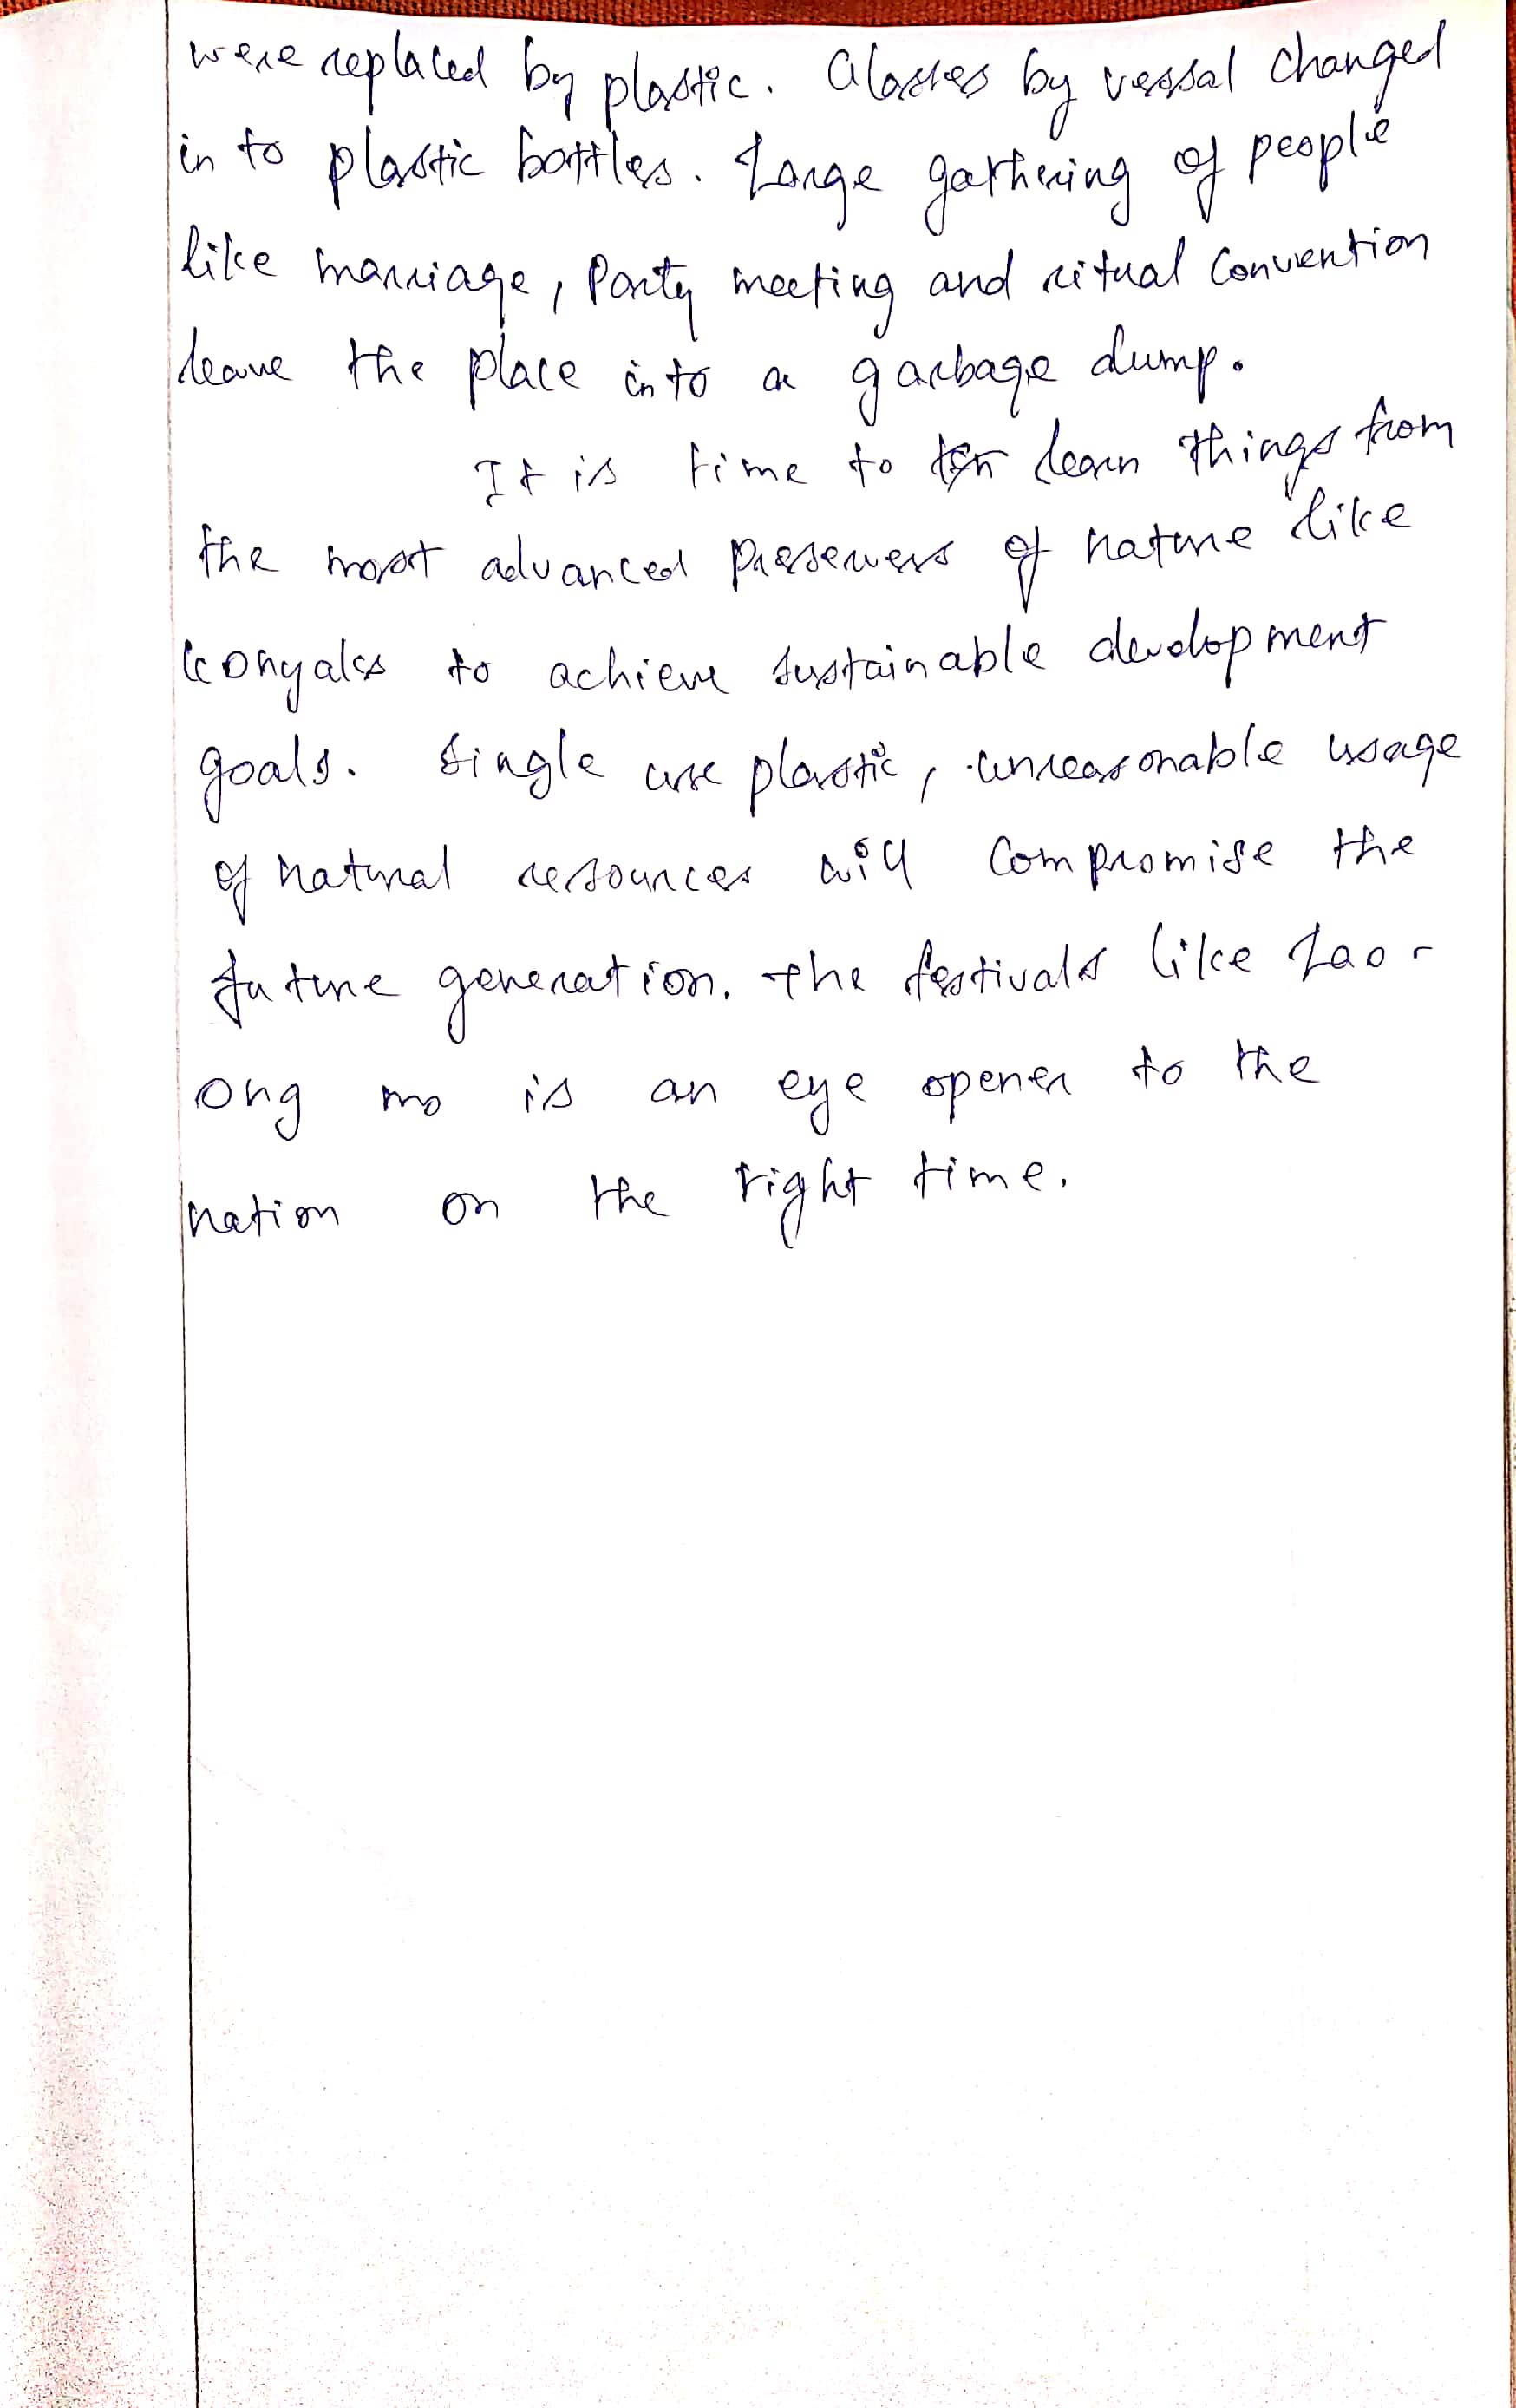 were replaced by plastic. Glasses by vessal changed
in to plastic bottles. Large gathering of people
like marriage, Party meeting and ritual Convention
leave the place in to a garbage dump.
It is time to learn things from
the most advanced preservers of nature like
konyaks to achieve sustainable development
goals. Single use plastic, unreasonable usage
of natural resources will Compromise the
future generation. the festivals like Lao-
ong mo is an eye opener to the
nation on the right time.